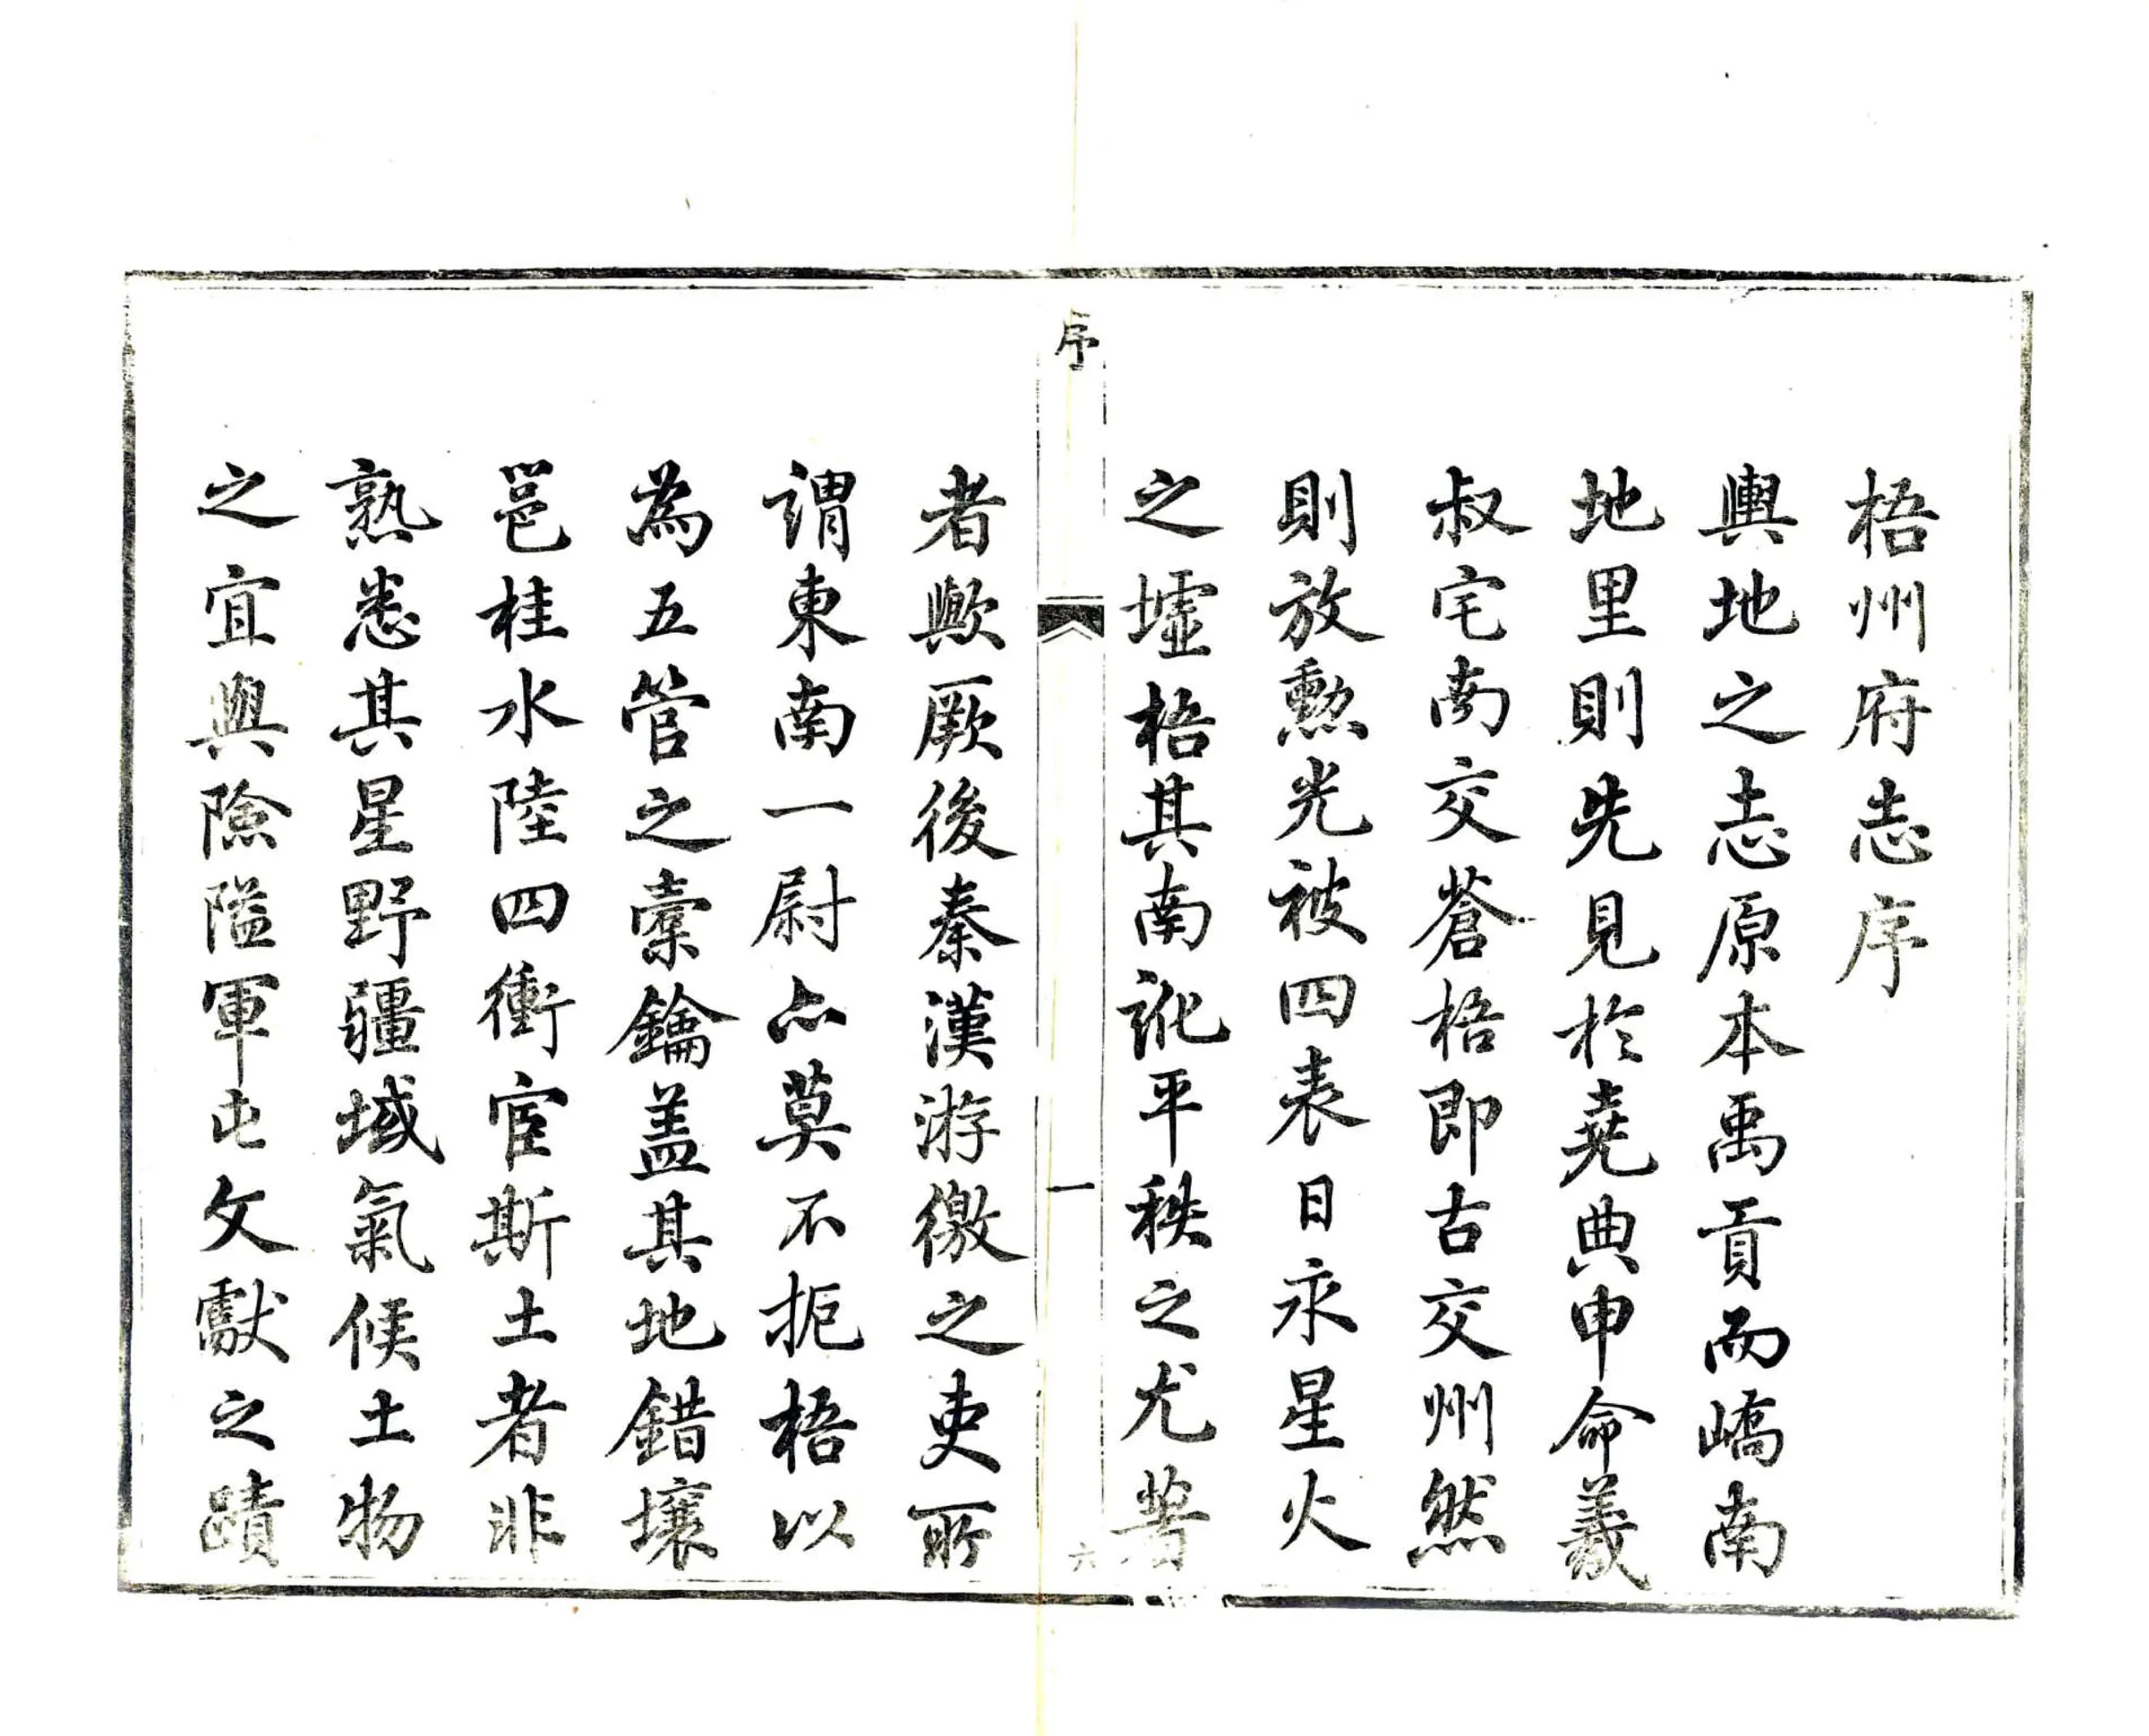 梧州府志序
輿地之志原本禹貢而嶠南
地里則先見於堯典申命羲
叔宅南交蒼梧即古交州然
則放勲光被四表日永星火
之墟梧其南訛平秩之尤著
序
一
六
者歟厥後秦漢游徼之吏所
謂東南一尉亦莫不扼梧以
為五管之橐鑰盖其地錯壤
邕桂水陸四衝宦斯土者非
熟悉其星野疆域氣候土物
之宜與險隘軍屯文獻之蹟